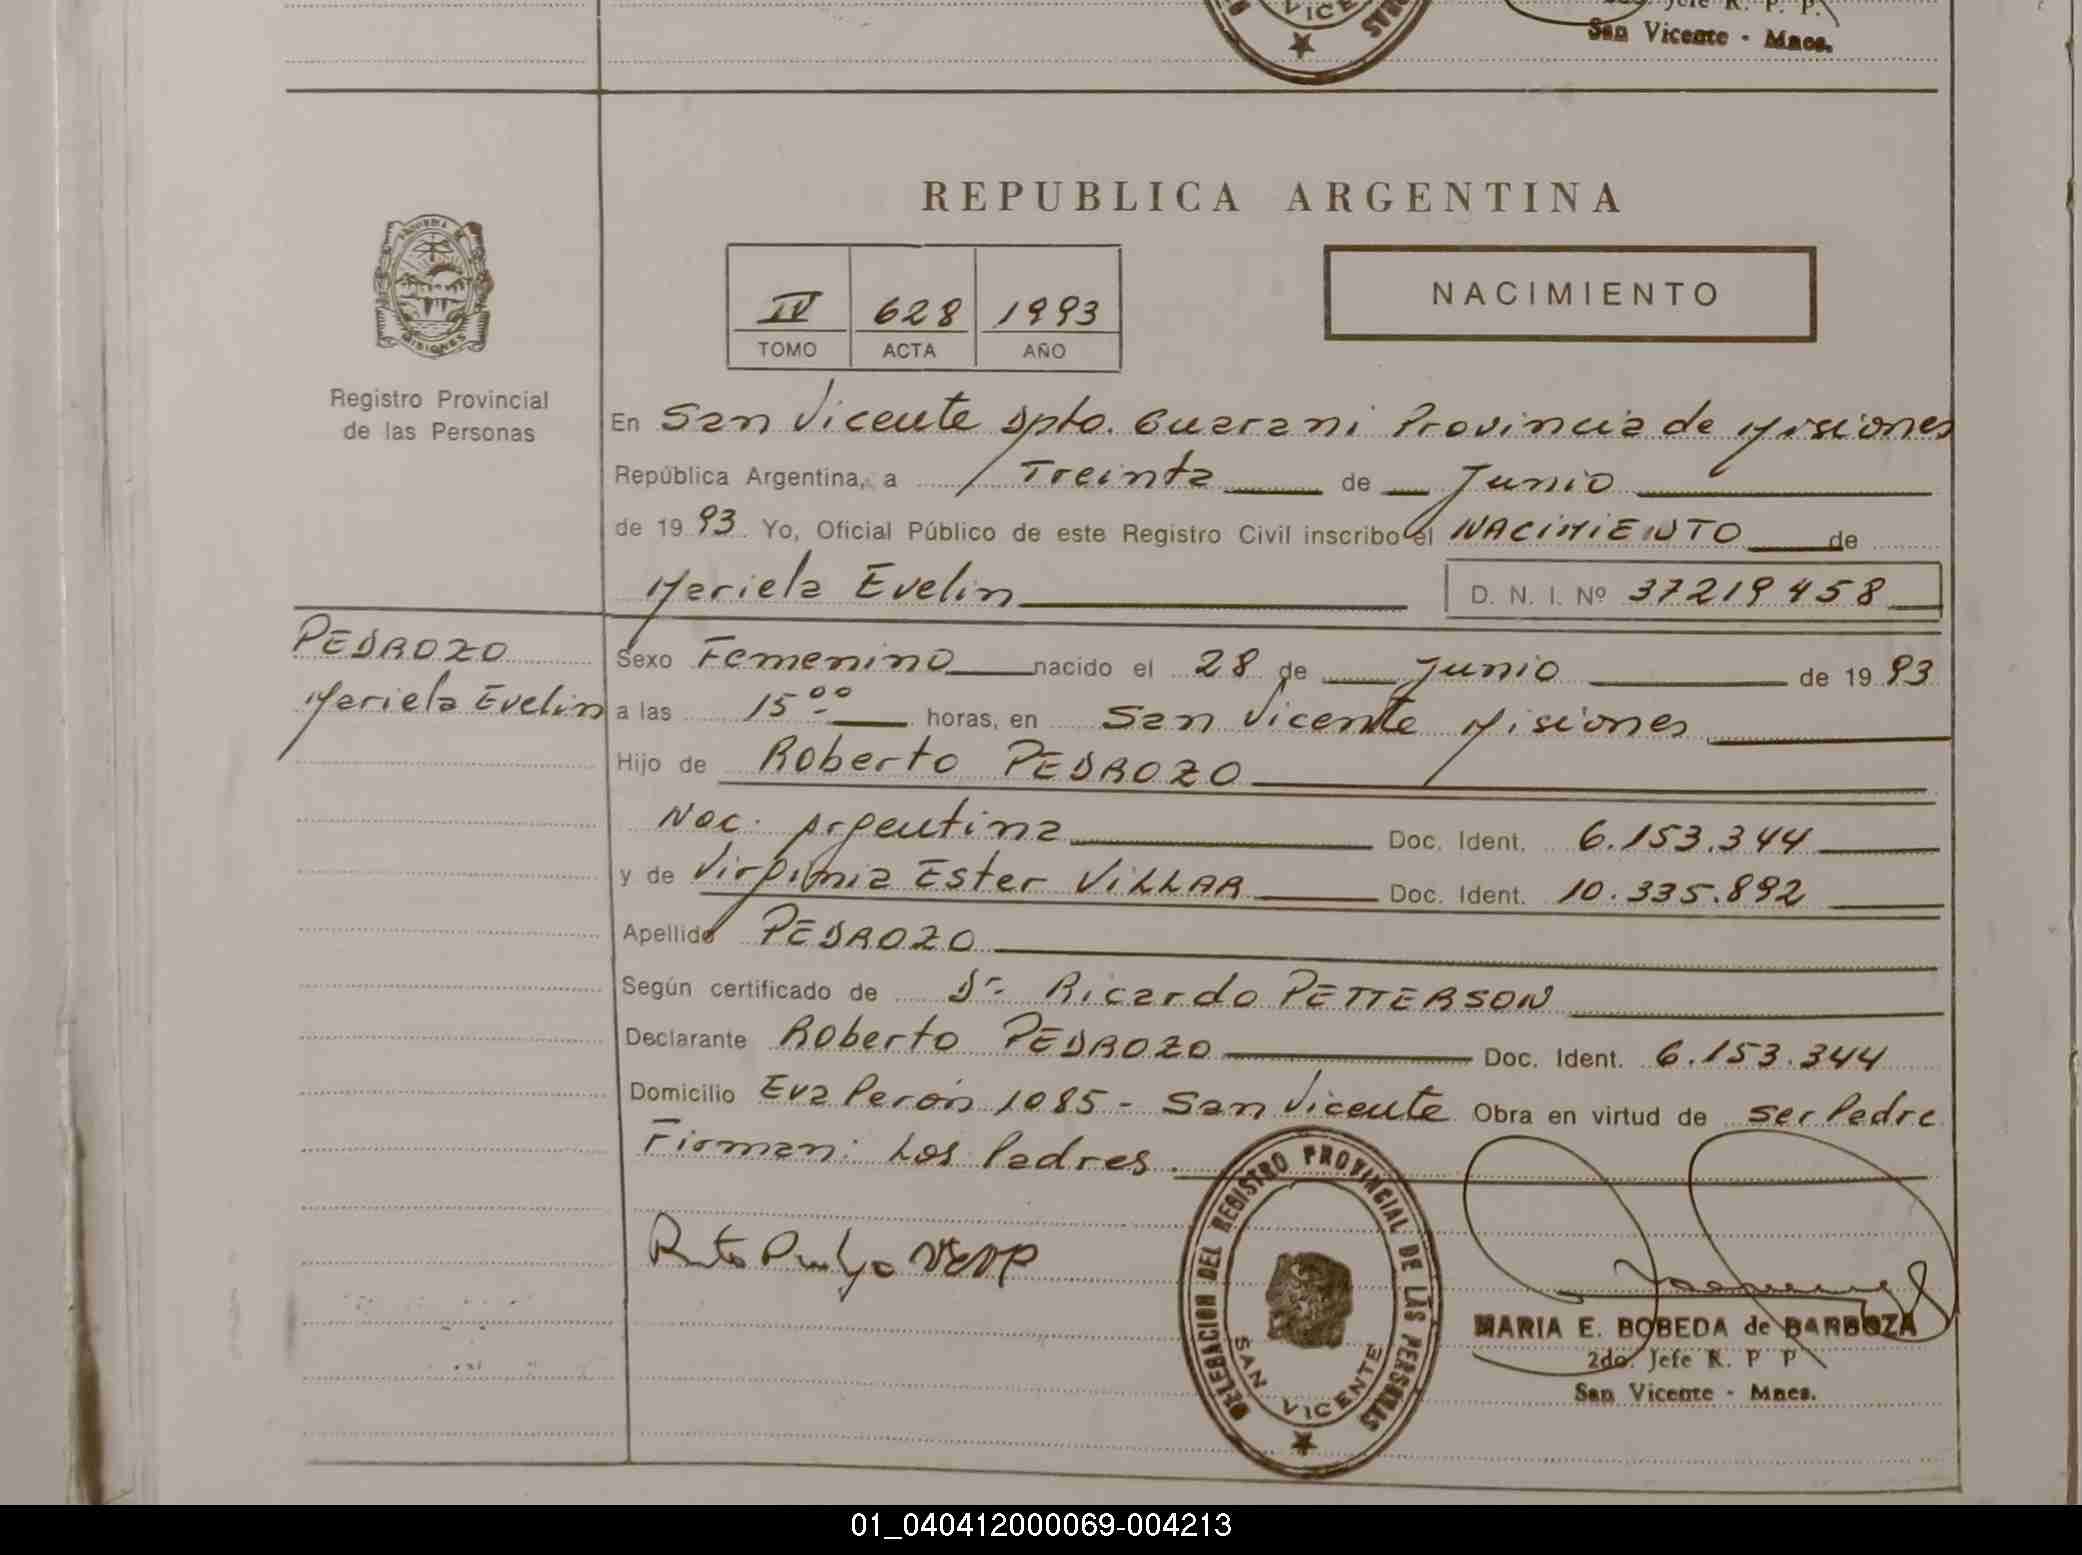 Jefe R. P. P.
San Vicente - Mnes.
REPUBLICA ARGENTINA
PROVINCIA DE
MISIONES
IV 628 1993
TOMO ACTA AÑO
NACIMIENTO
Registro Provincial
de las Personas
En San Vicente Dpto. Guarani Provincia de Misiones
República Argentina, a Treinta de Junio
de 1993. Yo, Oficial Público de este Registro Civil inscribo el NACIMIENTO de
Mariela Evelin D. N. I. Nº 37219458
PEDROZO
Mariela Evelin
Sexo Femenino nacido el 28 de Junio de 1993
a las 15⁰⁰ horas, en San Vicente Misiones
Hijo de Roberto PEDROZO
Nac. Argentina Doc. Ident. 6.153.344
y de Virginia Ester VILLAR Doc. Ident. 10.335.892
Apellido PEDROZO
Según certificado de Dr. Ricardo PETTERSON
Declarante Roberto PEDROZO Doc. Ident. 6.153.344
Domicilio Eva Perón 1085 - San Vicente Obra en virtud de ser Padre
Firman: Los Padres.
DELEGACION DEL REGISTRO PROVINCIAL DE LAS PERSONAS
SAN VICENTE
MARIA E. BOBEDA de BARBOZA
2do. Jefe R. P P
San Vicente - Mnes.
01_040412000069-004213